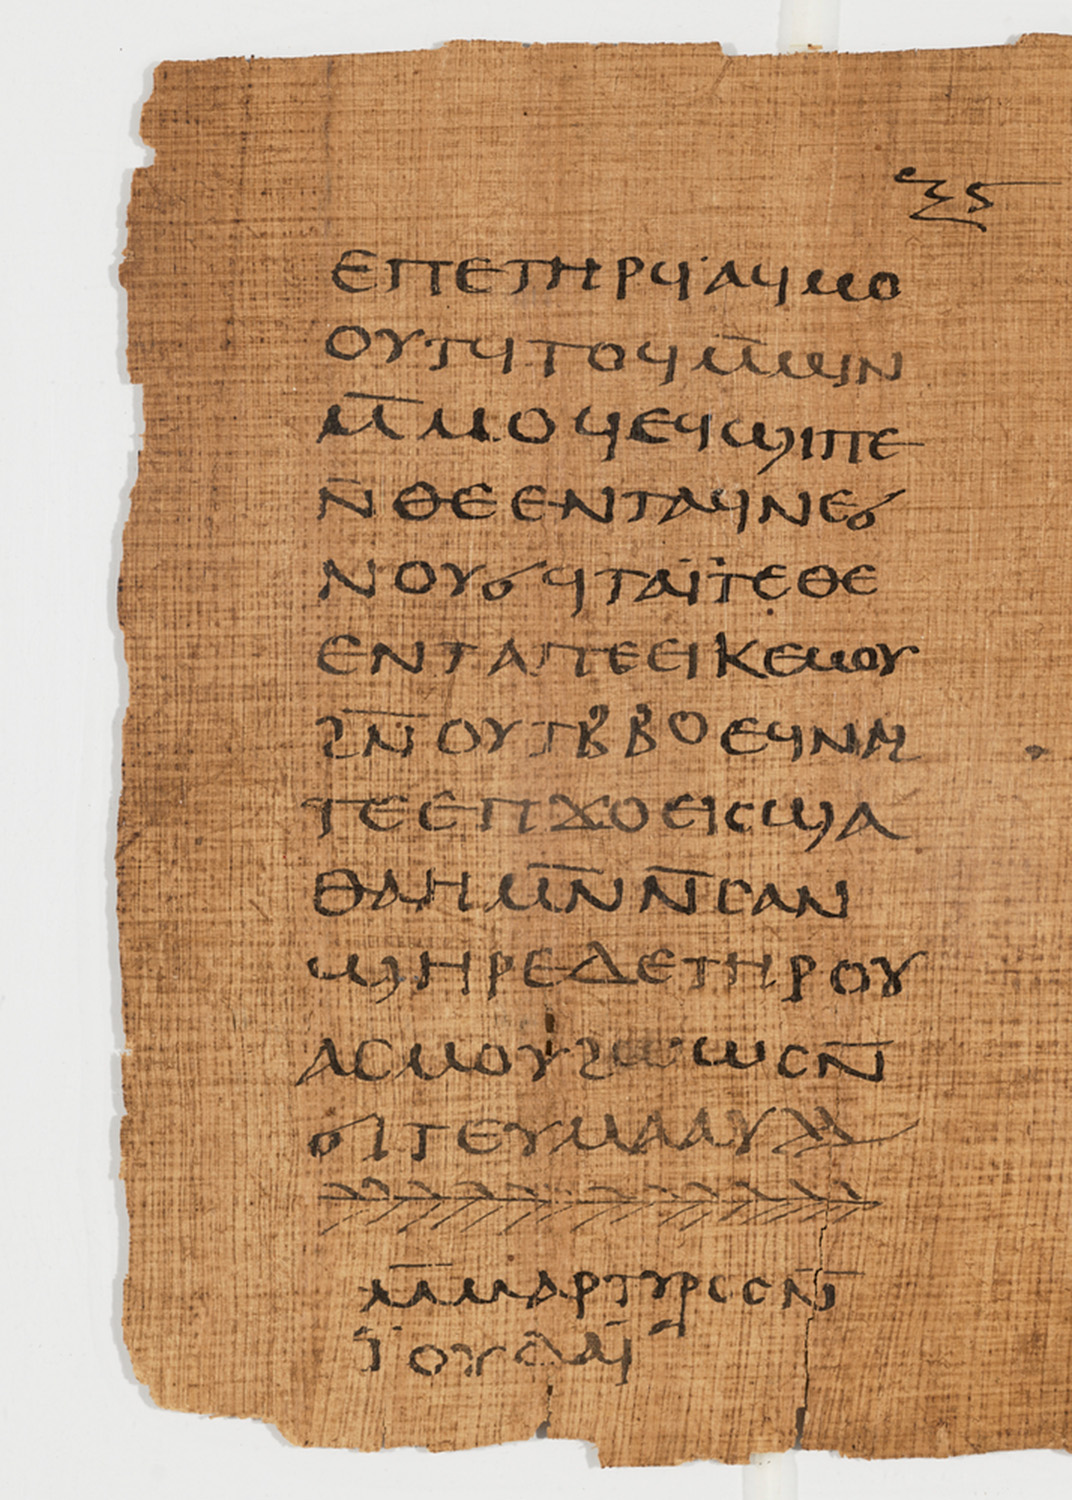 ⲝⲋ
ⲉⲡⲉⲧⲏⲣϥ·ⲁϥⲙⲟ
ⲟⲩⲧϥⲧⲟϥⲙ̅ⲙⲓⲛ
ⲙ̅ⲙⲟϥⲉϥϣⲓⲡⲉ
ⲛ̅ⲑⲉⲉⲛⲧⲁϥⲛⲉϭ
ⲛⲟⲩϭϥⲧⲁⲓ̈ⲧⲉⲑⲉ
ⲉⲛⲧⲁⲧⲉⲉⲓⲕⲉⲙⲟⲩ
ϩⲛ̅ⲟⲩⲧⲃ̅ⲃⲟⲉϥⲛⲁϩ
ⲧⲉⲉⲡϫⲟⲉⲓⲥϣⲁ
ⲑⲁⲏⲙⲛ̅ⲛ̅ⲥⲁⲛ
ϣⲏⲣⲉⲇⲉⲧⲏⲣⲟⲩ
ⲁⲥⲙⲟⲩϩⲱⲱⲥⲛ̅
ϭⲓⲧⲉⲩⲙⲁⲁⲩ
ⲙ̅ⲙⲁⲣⲧⲩⲣⲟⲥⲛ̅
ⲓ̈ⲟⲩⲇⲁⲓ̈